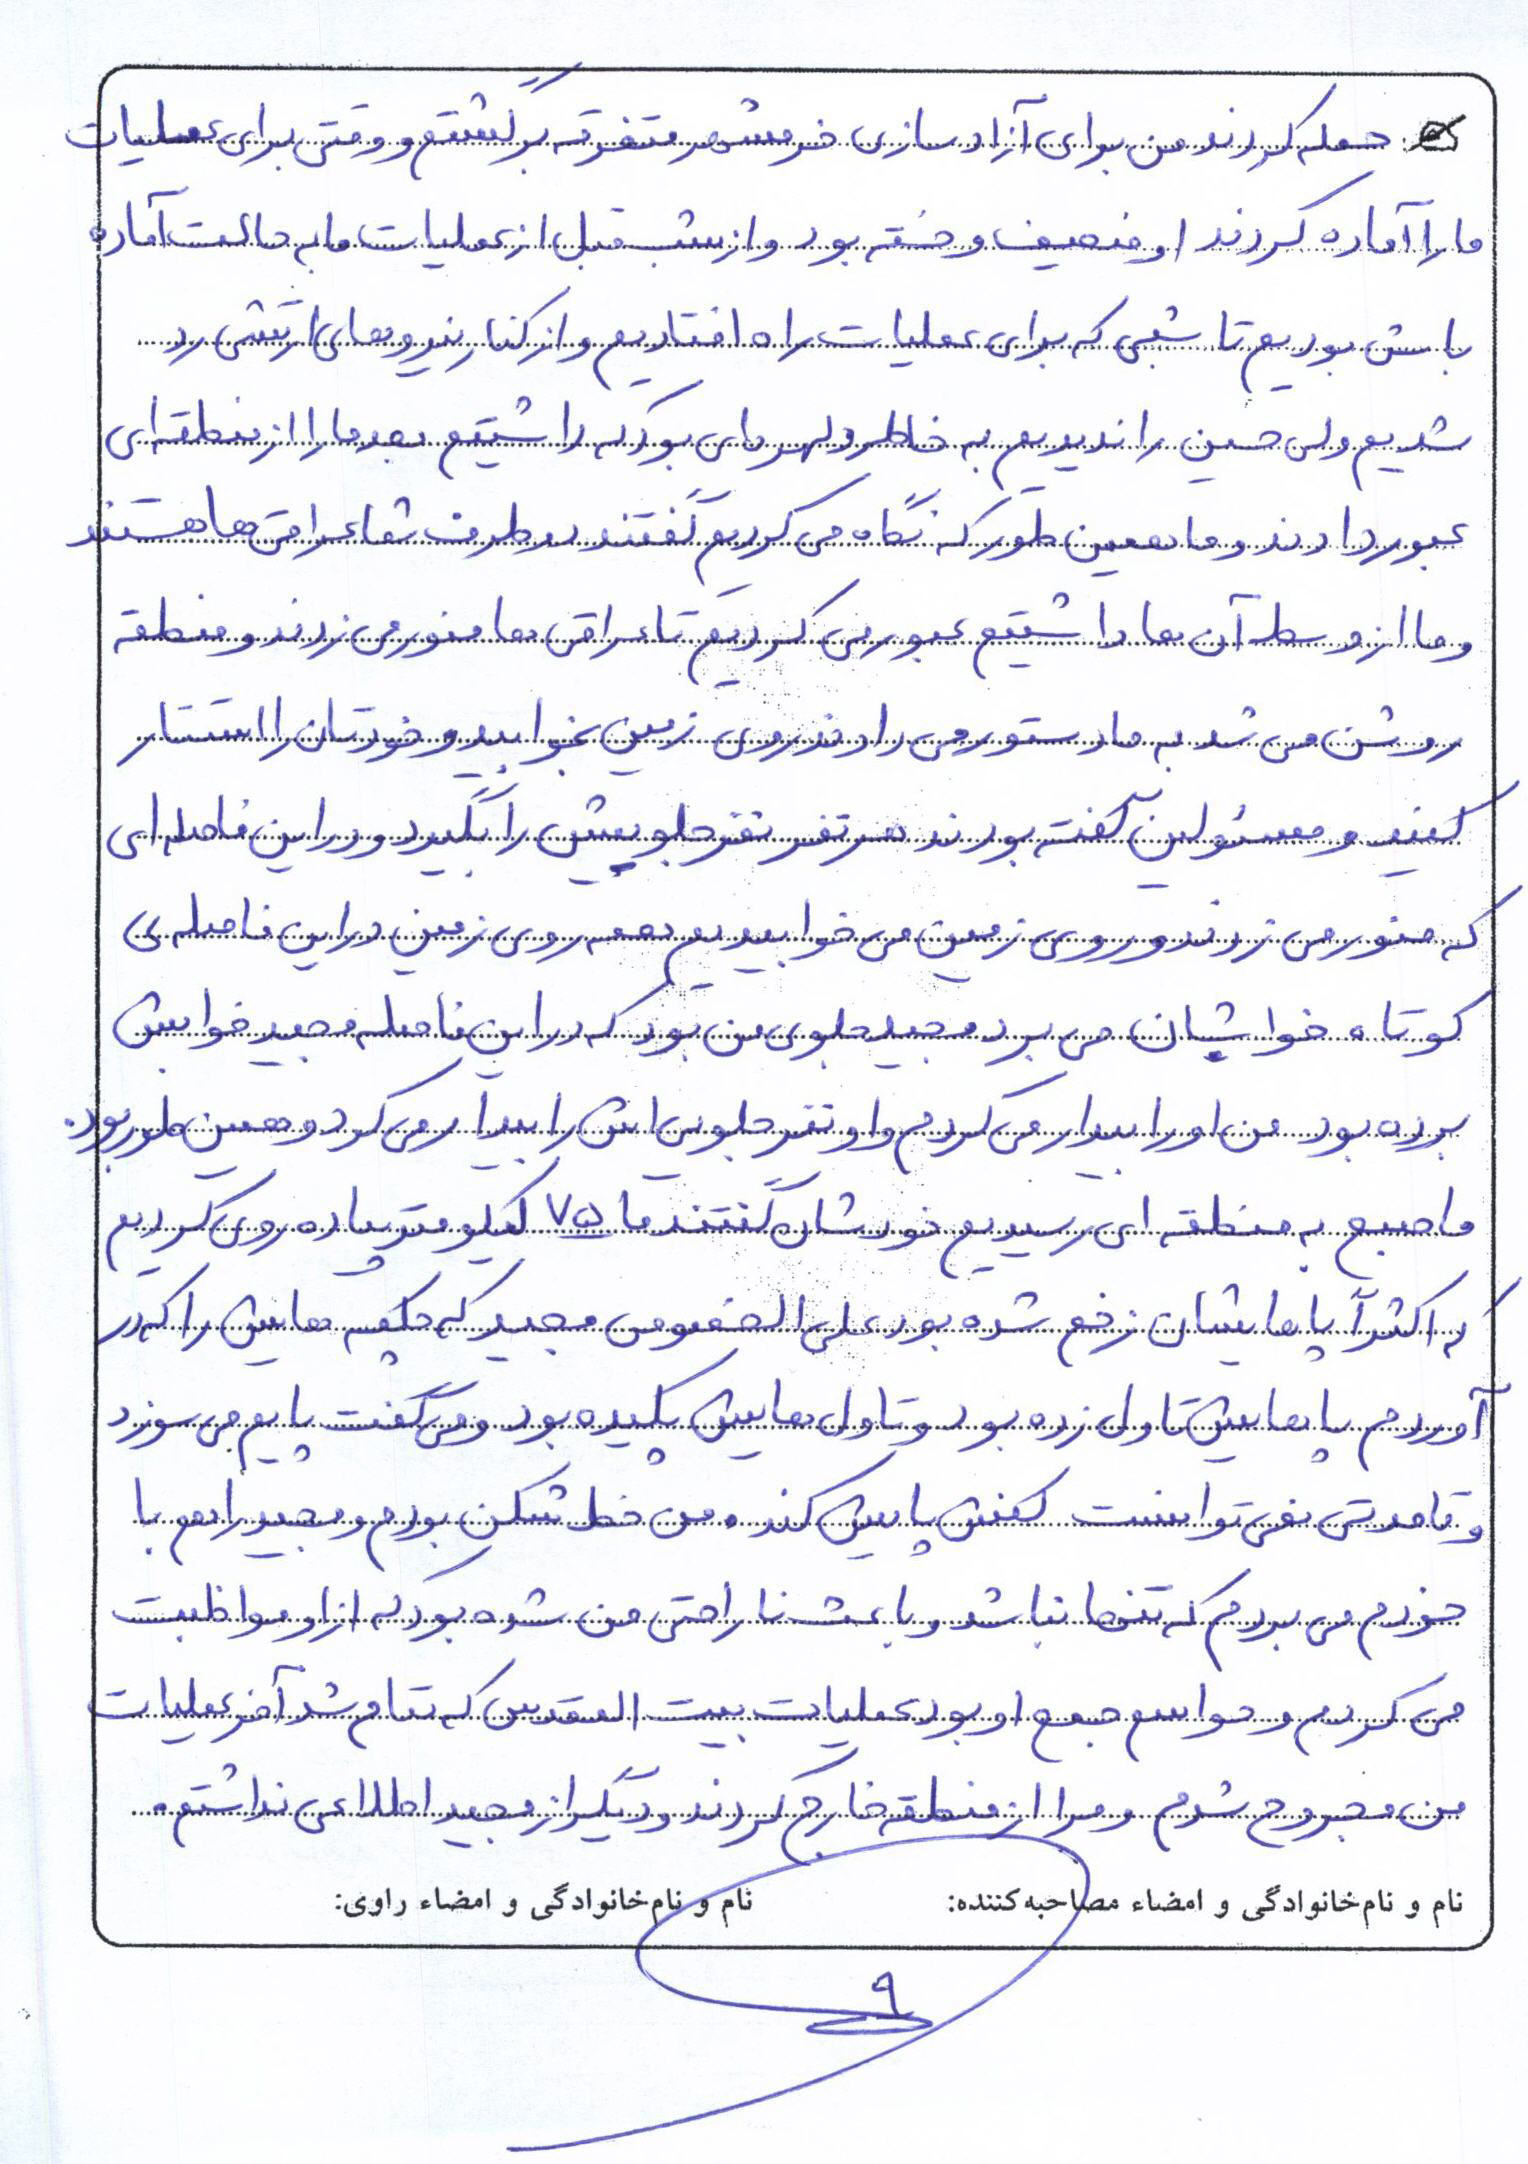 حمله کردند من برای آزادسازی خرمشهر متفرقه برگشتم و وقتی برای عملیات
ما را آماده کردند او ضعیف و خسته بود و از شب قبل از عملیات ما به حالت آماده
باش بودیم تا شبی که برای عملیات راه افتادیم و از کنار نیروهای ارتشی رد
شدیم ولی حسین را ندیدیم به خاطر دلهره ای بود که داشتیم بعد ما را از منطقه ای
عبور دادند و ما همین طور که نگاه می کردیم گفتند دو طرف شما عراقی ها هستند
و ما از وسط آن ها داشتیم عبور می کردیم تا عراقی ها منور می زدند و منطقه
روشن می شد به ما دستور می دادند روی زمین بخوابید و خودتان را استتار
کنید و مسئولین گفته بودند هر نفر نفر جلوییش را بگیرد و در این فاصله ای
که منور می زدند و روی زمین می خوابیدیم همه روی زمین در این فاصله ی
کوتاه خوابشان می برد مجید جلوی من بود که در این فاصله مجید خوابش
برده بود من او را بیدار می کردم و او نفر جلویی اش را بیدار می کرد و همین طور بود.
ما صبح به منطقه ای رسیدیم خودشان گفتند ما ۷۵ کیلومتر پیاده روی کردیم
که اکثراً پاهایشان زخم شده بود علی الخصوص مجید که چکمه هایش را که در
آوردم پاهایش تاول زده بود و تاول هایش پکیده بود و می گفت پایم می سوزد
و تا مدتی نمی توانست کفش پایش کند. من خط شکن بودم و مجید را هم با
خودم می بردم که تنها نباشد و باعث ناراحتی من شده بود که از او مواظبت
می کردم و حواسم جمع او بود عملیات بیت المقدس که تمام شد آخر عملیات
من مجروح شدم و مرا از منطقه خارج کردند و دیگر از مجید اطلاعی نداشتم.
نام و نام‌خانوادگی و امضاء مصاحبه‌کننده: نام و نام‌خانوادگی و امضاء راوی:
۹